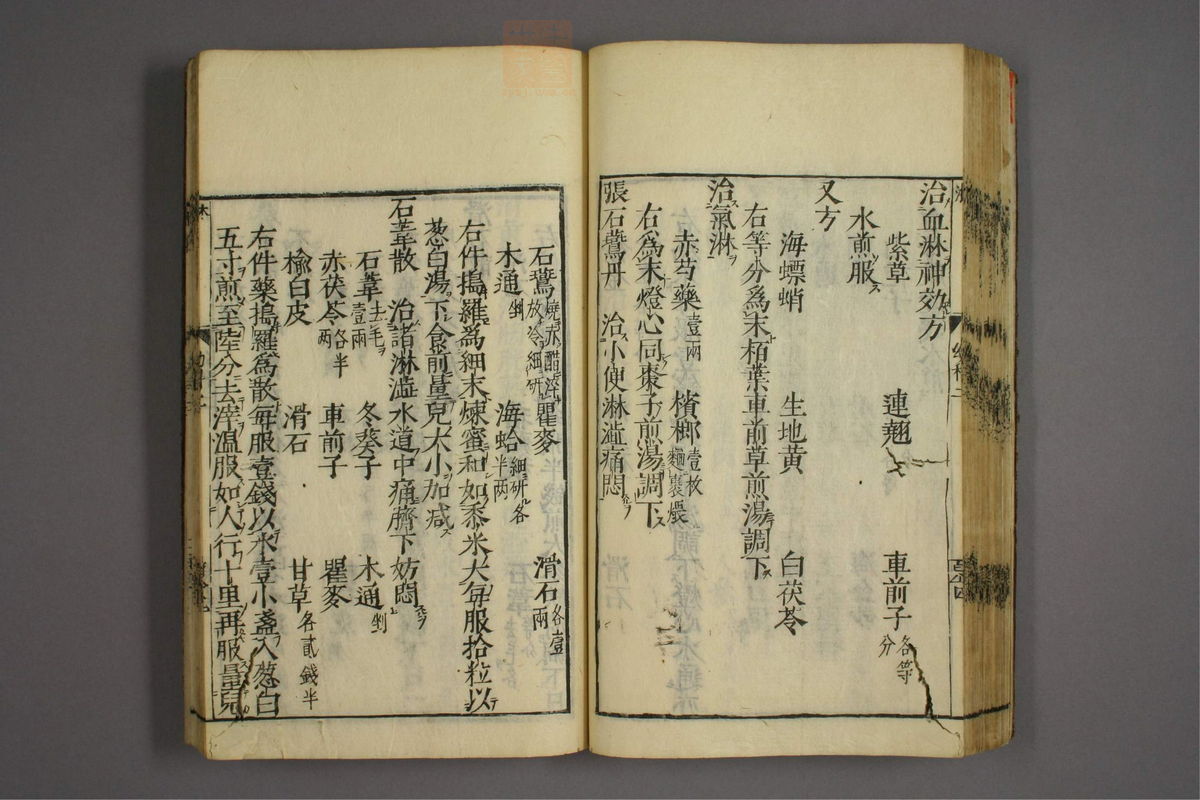 治血淋神効方
紫草 連翹 車前子各等分
水煎服
又方
海螵蛸 生地黄 白茯苓
右等分為末栢葉車前草煎湯調下
治氣淋
赤芍藥壹兩 檳榔壹枚麵裹煨
右為末燈心同棗子煎湯調下
張石鷰丹 治小便淋澁痛悶
石鷰燒赤醋淬放冷細研 瞿麥 滑石各壹兩
木通剉 海蛤細研各半兩
右件搗羅為細末煉蜜和如黍米大每服拾粒以
葱白湯下食前量兒大小加减
石葦散 治諸淋澁水道中痛臍下妨悶
石葦去毛壹兩 冬葵子 木通剉
赤茯苓各半兩 車前子 瞿麥
楡白皮 滑石 甘草各貳錢半
右件藥搗羅為散每服壹錢以水壹小盞入葱白
五寸煎至陸分去滓温服如人行十里再服量兒